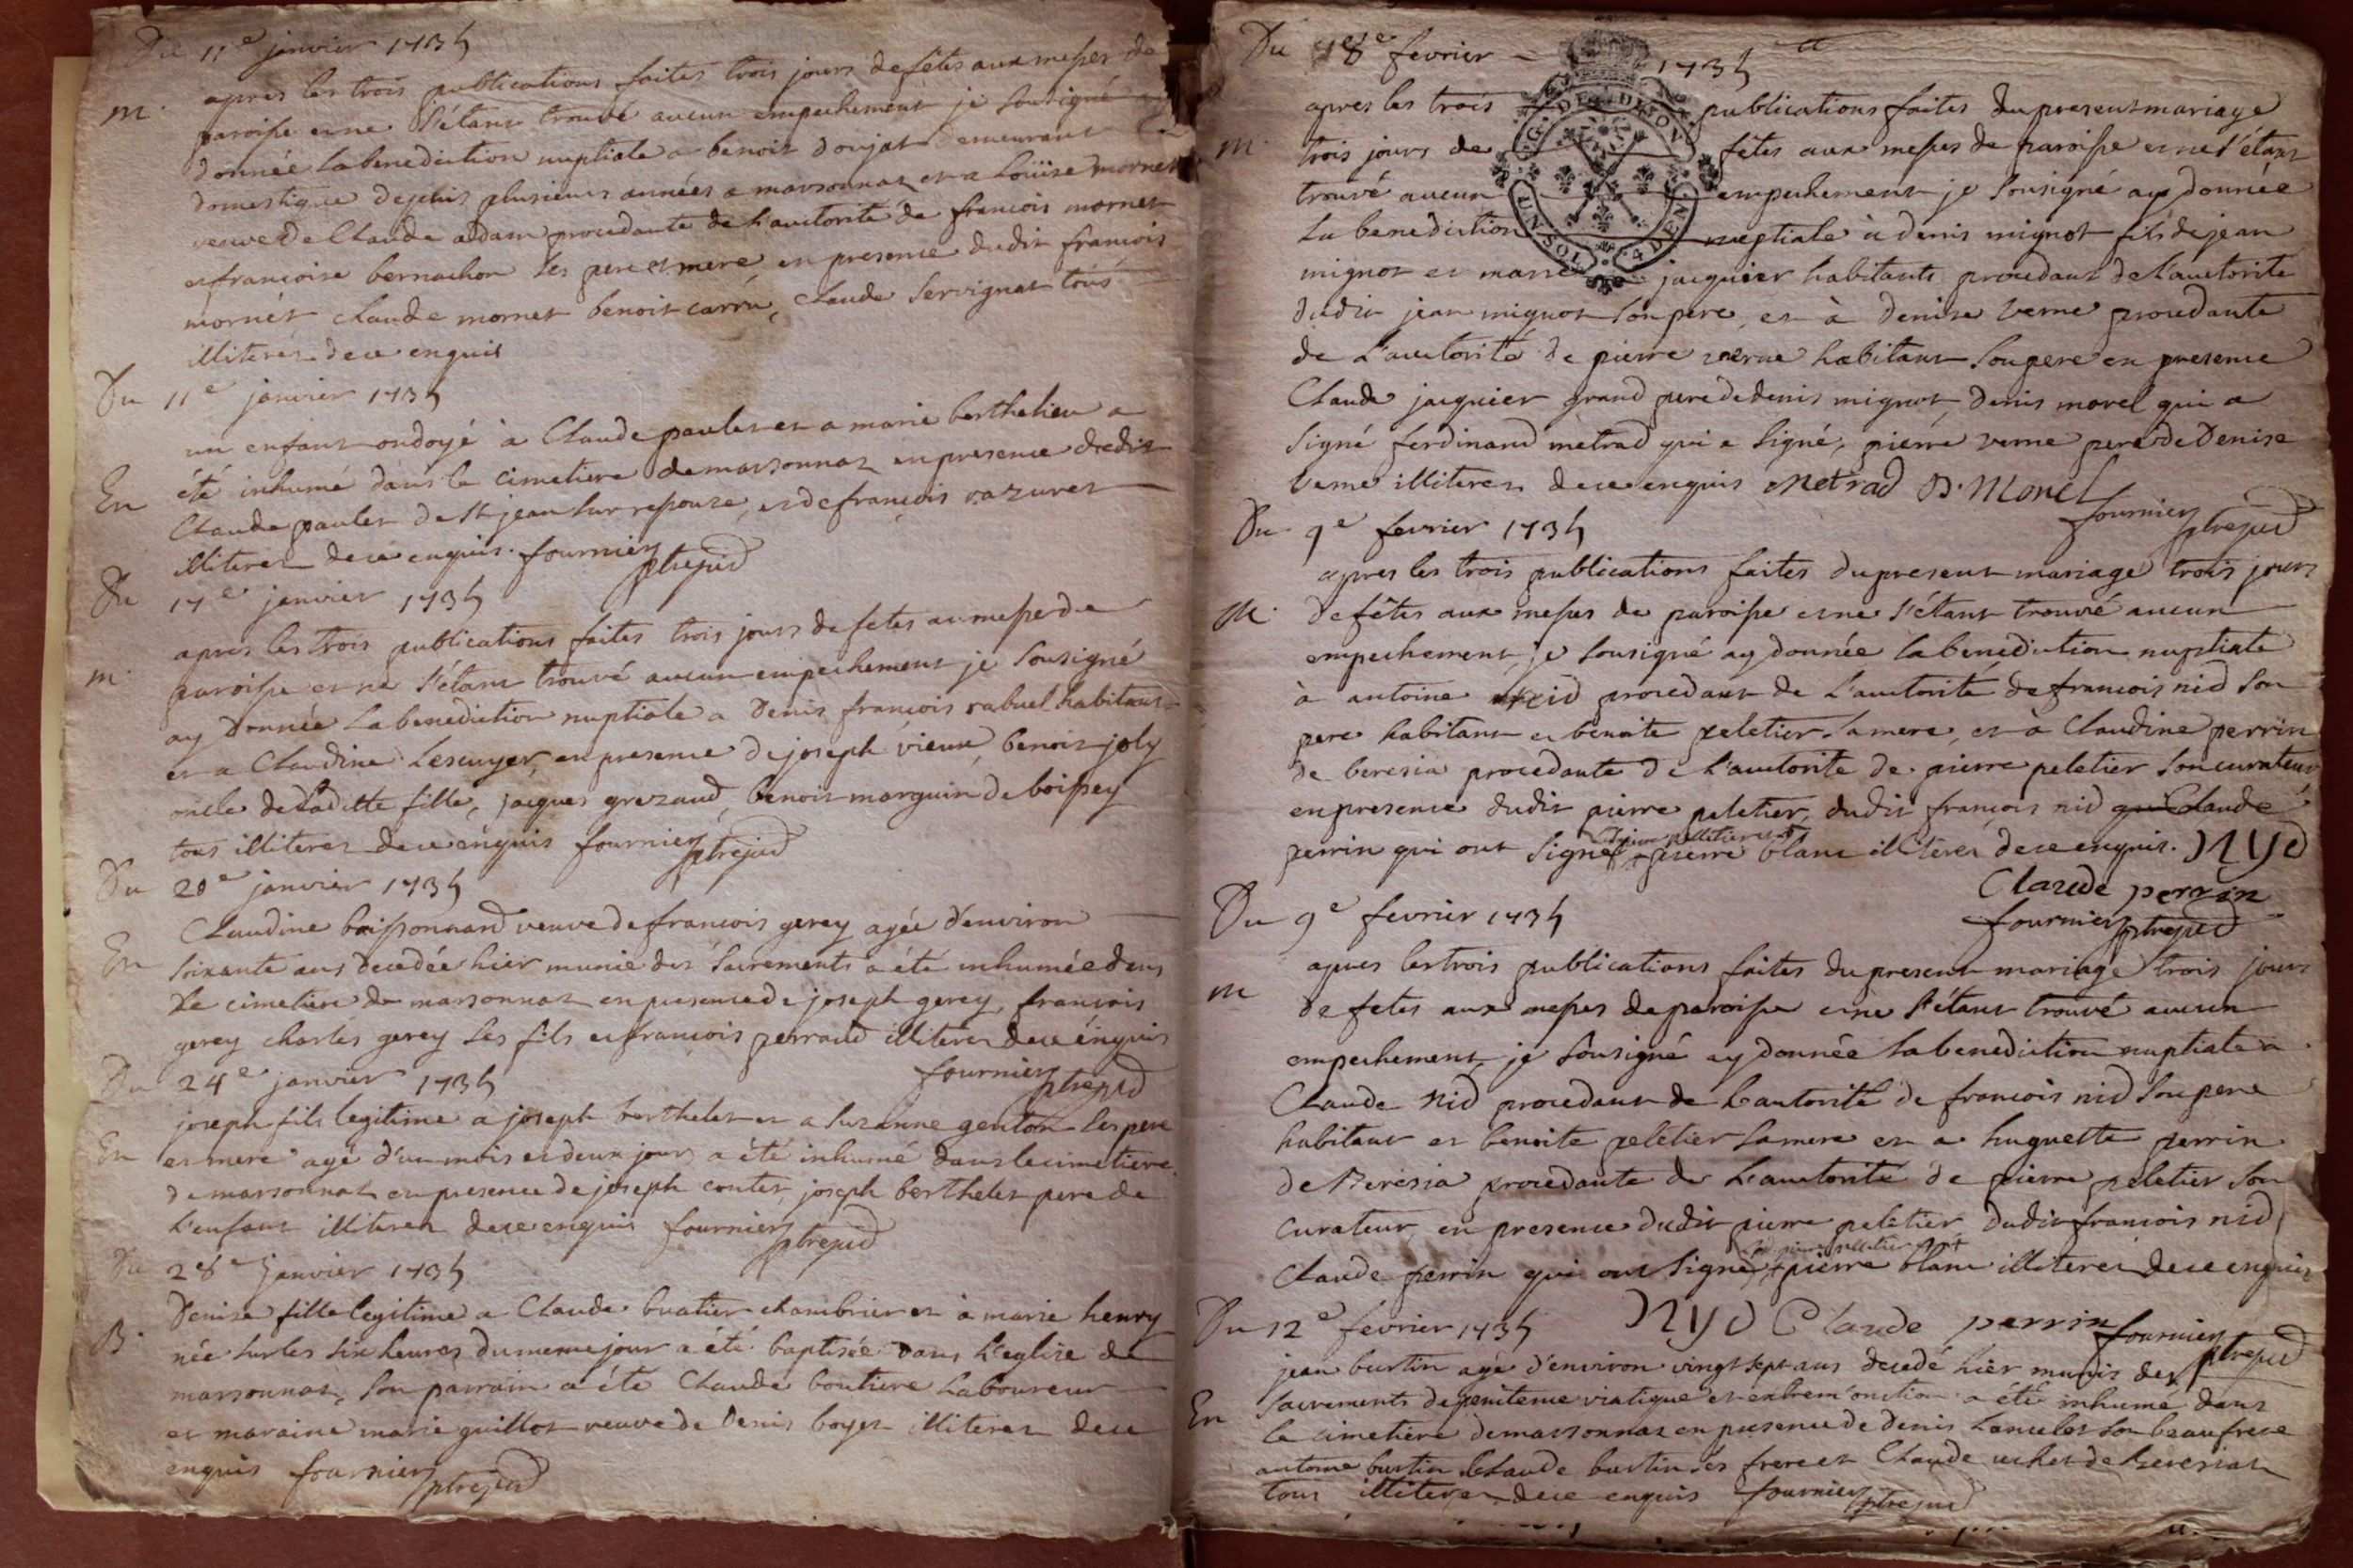 Du 11e janvier 1735
m. apres les trois publications faites trois jours de fêtes aux messes de
paroisse et ne s'étant trouvé aucun empechement je sousigné ay
donnée la benediction nuptiale a benoit donjat demeurant
domestique depuis plusieurs années a marsonnat et a Loüise mornet
veuve de Claude addam procedante de l'auctorité de francois mornet
et francoise bernachon ses pere et mere en presence dudit francois
mornét Claude mornet benoit carru, claude servignat tous
illiteres de ce enquis
Du 11e janvier 1735
un enfant ondoyé à Claude paulet et a marie berthelieu a
En été inhumé dans le cimetiere de marsonnat en presence dudit
Claude paulet de St jean sur repouse, et de francois razuret
illiteres de ce enquis. fournier ptre jud
Du 17e janvier 1735
m. apres les trois publications faites trois jours de fetes au messe de
paroisse et ne s'étant trouvé aucun empechement je sousigné
ay donnée la benediction nuptiale a Denis francois rabuel habitant
et a Claudine Lescuyer, en presence de joseph vieux, benoit joly
oncle de laditte fille, jacques grezaud, benoit marguin de boissey
tous illiteres de ce enquis fournier ptre jud
Du 20e janvier 1735
Claudine boissonnard veuve de francois gerey agée d'environ
En soixante ans decedée hier munie des sacrements a été inhumée dans
le cimetiere de marsonnat en presence de joseph gerey, francois
gerey charles gerey ses fils et francois perraud illiteres de ce enquis
Du 24e janvier 1735 fournier ptre jud
joseph fils legitime a joseph berthelet et a suzanne genton ses pere
En et mere agé d'un mois et deux jours a été inhumé dans le cimetiere
de marsonnat en presence de joseph contet, joseph berthelet pere de
l'enfant illiteres de ce enquis fournier ptre jud
Du 28e janvier 1735
Denise fille legitime a Claude buatier chambrier et à marie henry
B. née sur les six heures du meme jour a été baptisée dans l'eglise de
marsonnat, son parrain a été Claude boutiere laboureur
et maraine marie guillot veuve de Denis boyer illiteres de ce
enquis fournier ptre jud
Du 8e fevrier 1735
apres les trois publications faites du present mariage
m. trois jours de fêtes aux messes de paroisse et ne s'étant
trouvé aucun empechement je sousigné ay donnée
la benediction nuptiale à denis mignot fils de jean
mignot et marie jacquier habitants procedant de l'auctorité
dudit jean mignot son pere, et à denise verne procedante
de l'auctorité de pierre verne habitant son pere en presence
Claude jacquier grand pere de denis mignot, denis morel qui a
signé ferdinand metrad qui a signé, pierre verne pere de Denise
verne illiteres de ce enquis Metrad D. Morel
fournier ptre jud
G. DE DIJON
UN SOL 4 DEN
Du 9e fevrier 1735
apres les trois publications faites du present mariage trois jours
M. de fêtes aux messes de paroisse et ne s'étant trouvé aucun
empechement, je sousigné ay donnée la benediction nuptiale
à antoine nid procedant de l'auctorité de francois nid son
pere habitant et benoite peletier sa mere, et à Claudine perrin
de beresia procedante de l'auctorité de pierre peletier son curateur
en presence dudit pierre peletier, dudit francois nid Claude
perrin qui ont signé, pierre blanc illiteres de ce enquis. Nyd
Claude perrin
Du 9e fevrier 1735 fournier ptre jud
apres les trois publications faites du present mariage trois jours
m de fetes aux messes de paroisse et ne s'étant trouvé aucun
empechement, je sousigné ay donnée la benediction nuptiale a
Claude nid procedant de l'autorité de francois nid son pere
habitant et benoite peletier sa mere et a huguette perrin
de Beresia procedante de l'auctorité de pierre peletier son
curateur, en presence dudit pierre peletier dudit francois nid
Claude perrin qui ont signé, pierre blanc illiteres de ce enquis
Nyd Claude perrin fournier ptre jud
Du 12e février 1735
jean burtin agé d'environ vingt sept ans decedé hier munis des
En sacrements de penitence viatique et extrem'onction a été inhumé dans
le cimetiere de marsonnat en presence de denis Lancelot son beau frere
antoine burtin Claude burtin ses freres et Claude uchet de beresiat
tous illiteres de ce enquis fournier ptre jud